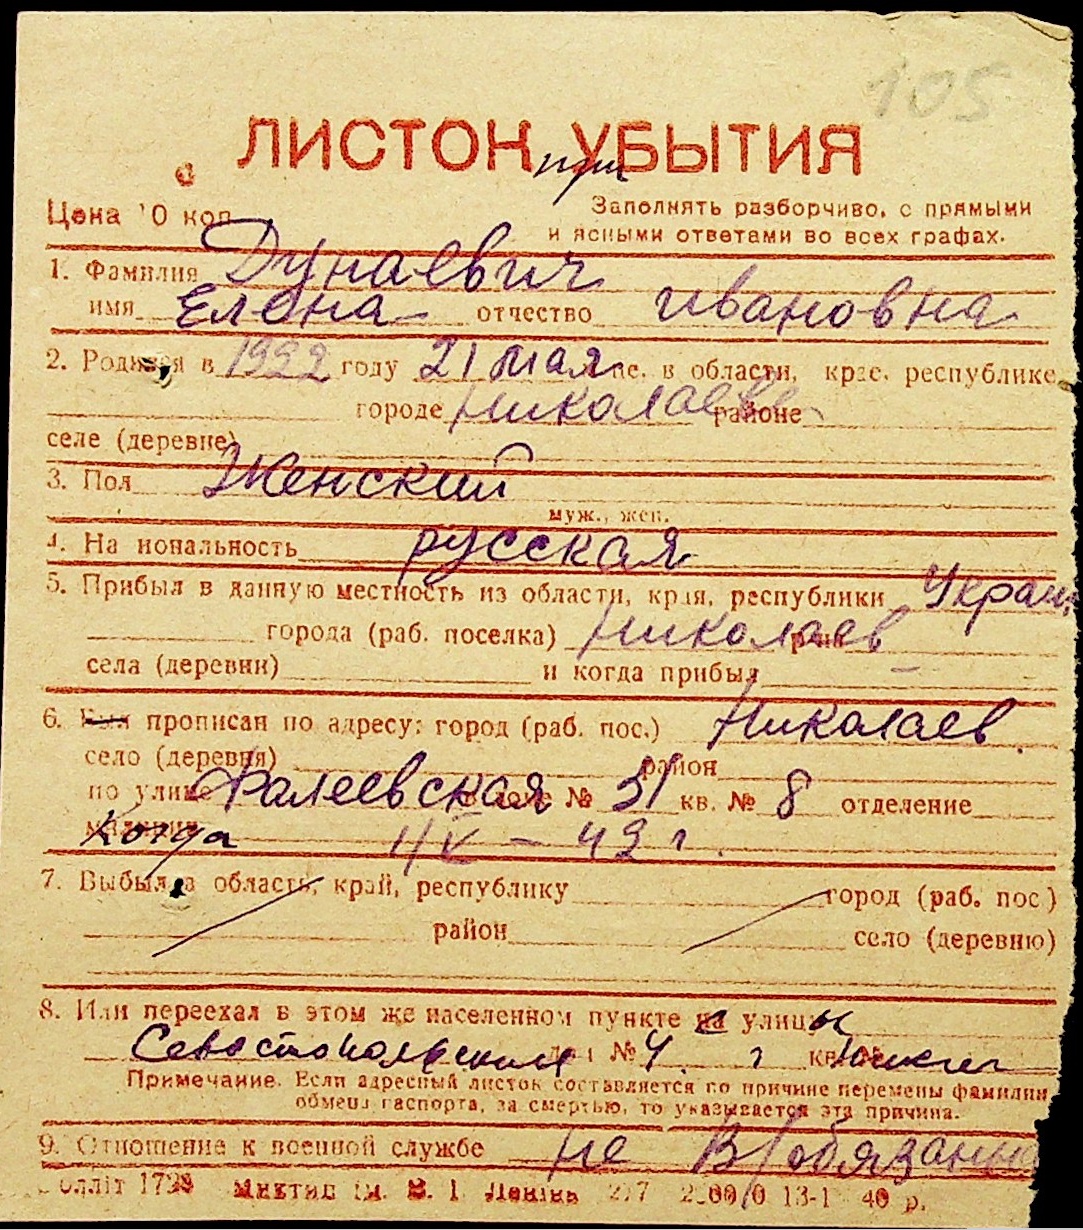 105
ЛИСТОК УБЫТИЯ
при
Цена 10 коп. Заполнять разборчиво, с прямыми
и ясными ответами во всех графах.
1. Фамилия Дунаевич
имя Елена отчество Ивановна
2. Родился в 1922 году 21 мая в области, крае, республике
городе Николаеве районе
селе (деревне)
3. Пол Женский
муж., жен.
4. Национальность русская
5. Прибыл в данную местность из области, края, республики Украин
города (раб. поселка) Николаев
села (деревни) и когда прибыл
6. Был прописан по адресу: город (раб. пос.) Николаев
село (деревня) район
по улице Фалеевская № 31 кв. № 8 отделение
милиции Когда 1/IV – 49 г.
7. Выбыл в область, край, республику город (раб. пос.)
район село (деревню)
8. Или переехал в этом же населенном пункте с улицы
Севастопольской дом № 4
Примечание. Если адресный листок составляется по причине перемены фамилии
обмена паспорта, за смертью, то указывается эта причина.
9. Отношение к военной службе не в/обязанна
им. В. І. Леніна 13-1 40 р.